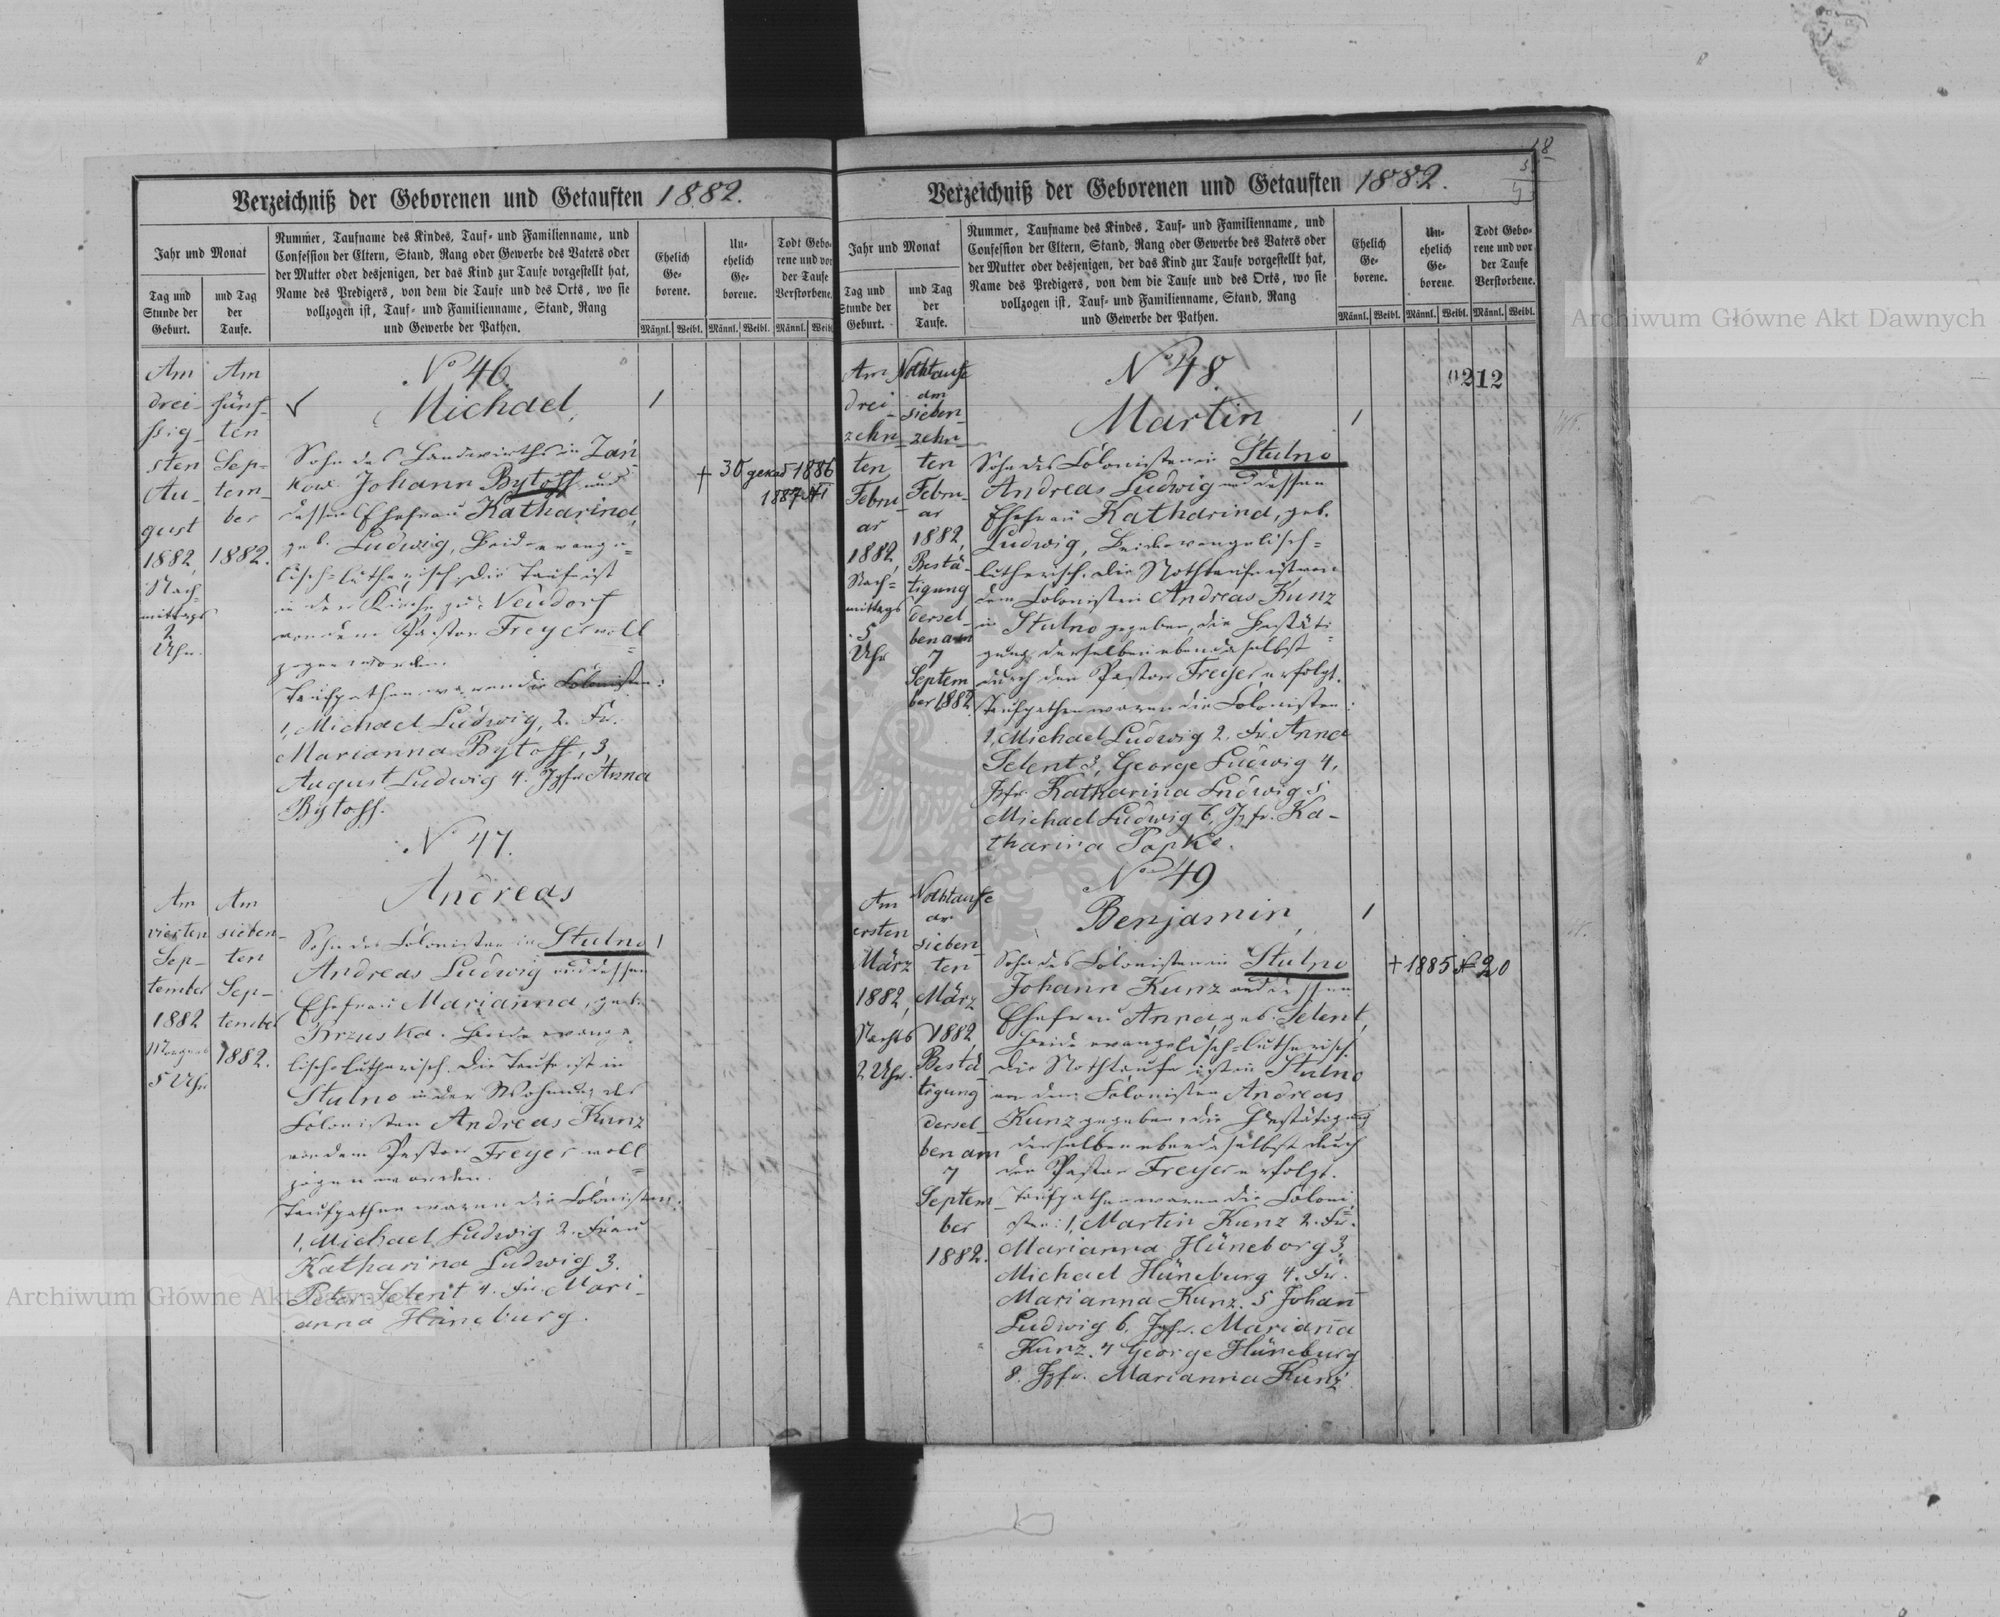 Verzeichniß der Geborenen und Getauften 1882.
Jahr und Monat
Tag und
Stunde der
Geburt.
und Tag
der
Taufe.
Nummer, Taufname des Kindes, Tauf- und Familienname, und
Confession der Eltern, Stand, Rang oder Gewerbe des Vaters oder
der Mutter oder desjenigen, der das Kind zur Taufe vorgestellt hat,
Name des Predigers, von dem die Taufe und des Orts, wo sie
vollzogen ist, Tauf- und Familienname, Stand, Rang
und Gewerbe der Pathen.
Ehelich
Ge-
borene.
Un-
ehelich
Ge-
borene.
Todt Gebo-
rene und vor
der Taufe
Verstorbene.
Männl. Weibl. Männl. Weibl. Männl. Weibl.
Am
drei-
ßig-
sten
Au-
gust
1882,
Nach-
mittags
2
Uhr.
Am
fünf-
ten
Sep-
tem-
ber
1882.
No 46.
Michael,
1
Sohn des Landwirths in Zan-
kow Johann Bytoff und
dessen Ehefrau Katharina,
geb. Ludwig, Beide evange-
lisch-lutherisch. Die Taufe ist
in der Kirche zu Neudorf
von dem Pastor Freyer voll-
zogen worden.
Taufpathen waren die Colonisten:
1, Michael Ludwig, 2. Fr.
Marianna Bytoff, 3,
August Ludwig 4. Jgfr Anna
Bytoff.
+ 30 1886
1887
No 47.
Andreas
Am
vierten
Sep-
tember
1882
Morgens
5 Uhr
Am
sieben-
ten
Sep-
tember
1882.
Sohn des Colonisten in Stulno 1
Andreas Ludwig und dessen
Ehefrau Marianna, geb.
Brzuska. Beide evange-
lisch-lutherisch. Die Taufe ist in
Stulno in der Wohnung des
Colonisten Andreas Kunz
von dem Pastor Freyer voll-
zogen worden.
Taufpathen waren die Colonisten:
1, Michael Ludwig 2. Frau
Katharina Ludwig 3.
Peter Selent 4. Fr. Mari-
anna Hüneburg.
18
Verzeichniß der Geborenen und Getauften 1882.
Jahr und Monat
Tag und
Stunde der
Geburt.
und Tag
der
Taufe.
Nummer, Taufname des Kindes, Tauf- und Familienname, und
Confession der Eltern, Stand, Rang oder Gewerbe des Vaters oder
der Mutter oder desjenigen, der das Kind zur Taufe vorgestellt hat,
Name des Predigers, von dem die Taufe und des Orts, wo sie
vollzogen ist, Tauf- und Familienname, Stand, Rang
und Gewerbe der Pathen.
Ehelich
Ge-
borene.
Un-
ehelich
Ge-
borene.
Todt Gebo-
rene und vor
der Taufe
Verstorbene.
Männl. Weibl. Männl. Weibl. Männl. Weibl.
Am
drei-
zehn-
ten
Febru-
ar
1882,
Nach-
mittags
5
Uhr
Nothtaufe
am
sieben-
zehn-
ten
Febru-
ar
1882,
Bestä-
tigung
dersel-
ben am
7
Septem
ber 1882.
No 48
0212
Martin
1
Sohn des Colonisten in Stulno
Andreas Ludwig und dessen
Ehefrau Katharina, geb.
Ludwig, Beide evangelisch-
lutherisch. Die Nothtaufe ist von
dem Colonisten Andreas Kunz
in Stulno gegeben, die Bestäti-
gung derselben ebendaselbst
durch den Pastor Freyer erfolgt.
Taufpathen waren die Colonisten:
1, Michael Ludwig 2. Fr. Anna
Selent 3, George Ludwig 4,
Jgfr. Katharina Ludwig 5
Michael Ludwig 6, Jgfr. Ka-
tharina Popke.
No 49
Am
ersten
März
1882,
Nachts
2 Uhr.
Nothtaufe
sieben-
ten
März
1882
Bestä-
tigung
dersel-
ben am
7
Septem-
ber
1882.
Benjamin,
1
Sohn des Colonisten in Stulno
Johann Kunz und dessen
Ehefrau Anna, geb. Selent,
Beide evangelisch-lutherisch
Die Nothtaufe ist in Stulno
von dem Colonisten Andreas
Kunz gegeben, die Bestätigung
derselben ebendaselbst durch
den Pastor Freyer erfolgt.
Taufpathen waren die Coloni-
sten: 1, Martin Kunz 2. Fr.
Marianna Hüneborg 3,
Michael Hüneburg 4. Fr.
Marianna Kunz. 5 Johan
Ludwig 6. Jgfr. Mariana
Kunz. 7 George Hüneburg
8. Jgfr. Marianna Kunz
+ 1885 No 20
Archiwum Główne Akt Dawnych
Archiwum Główne Akt Dawnych